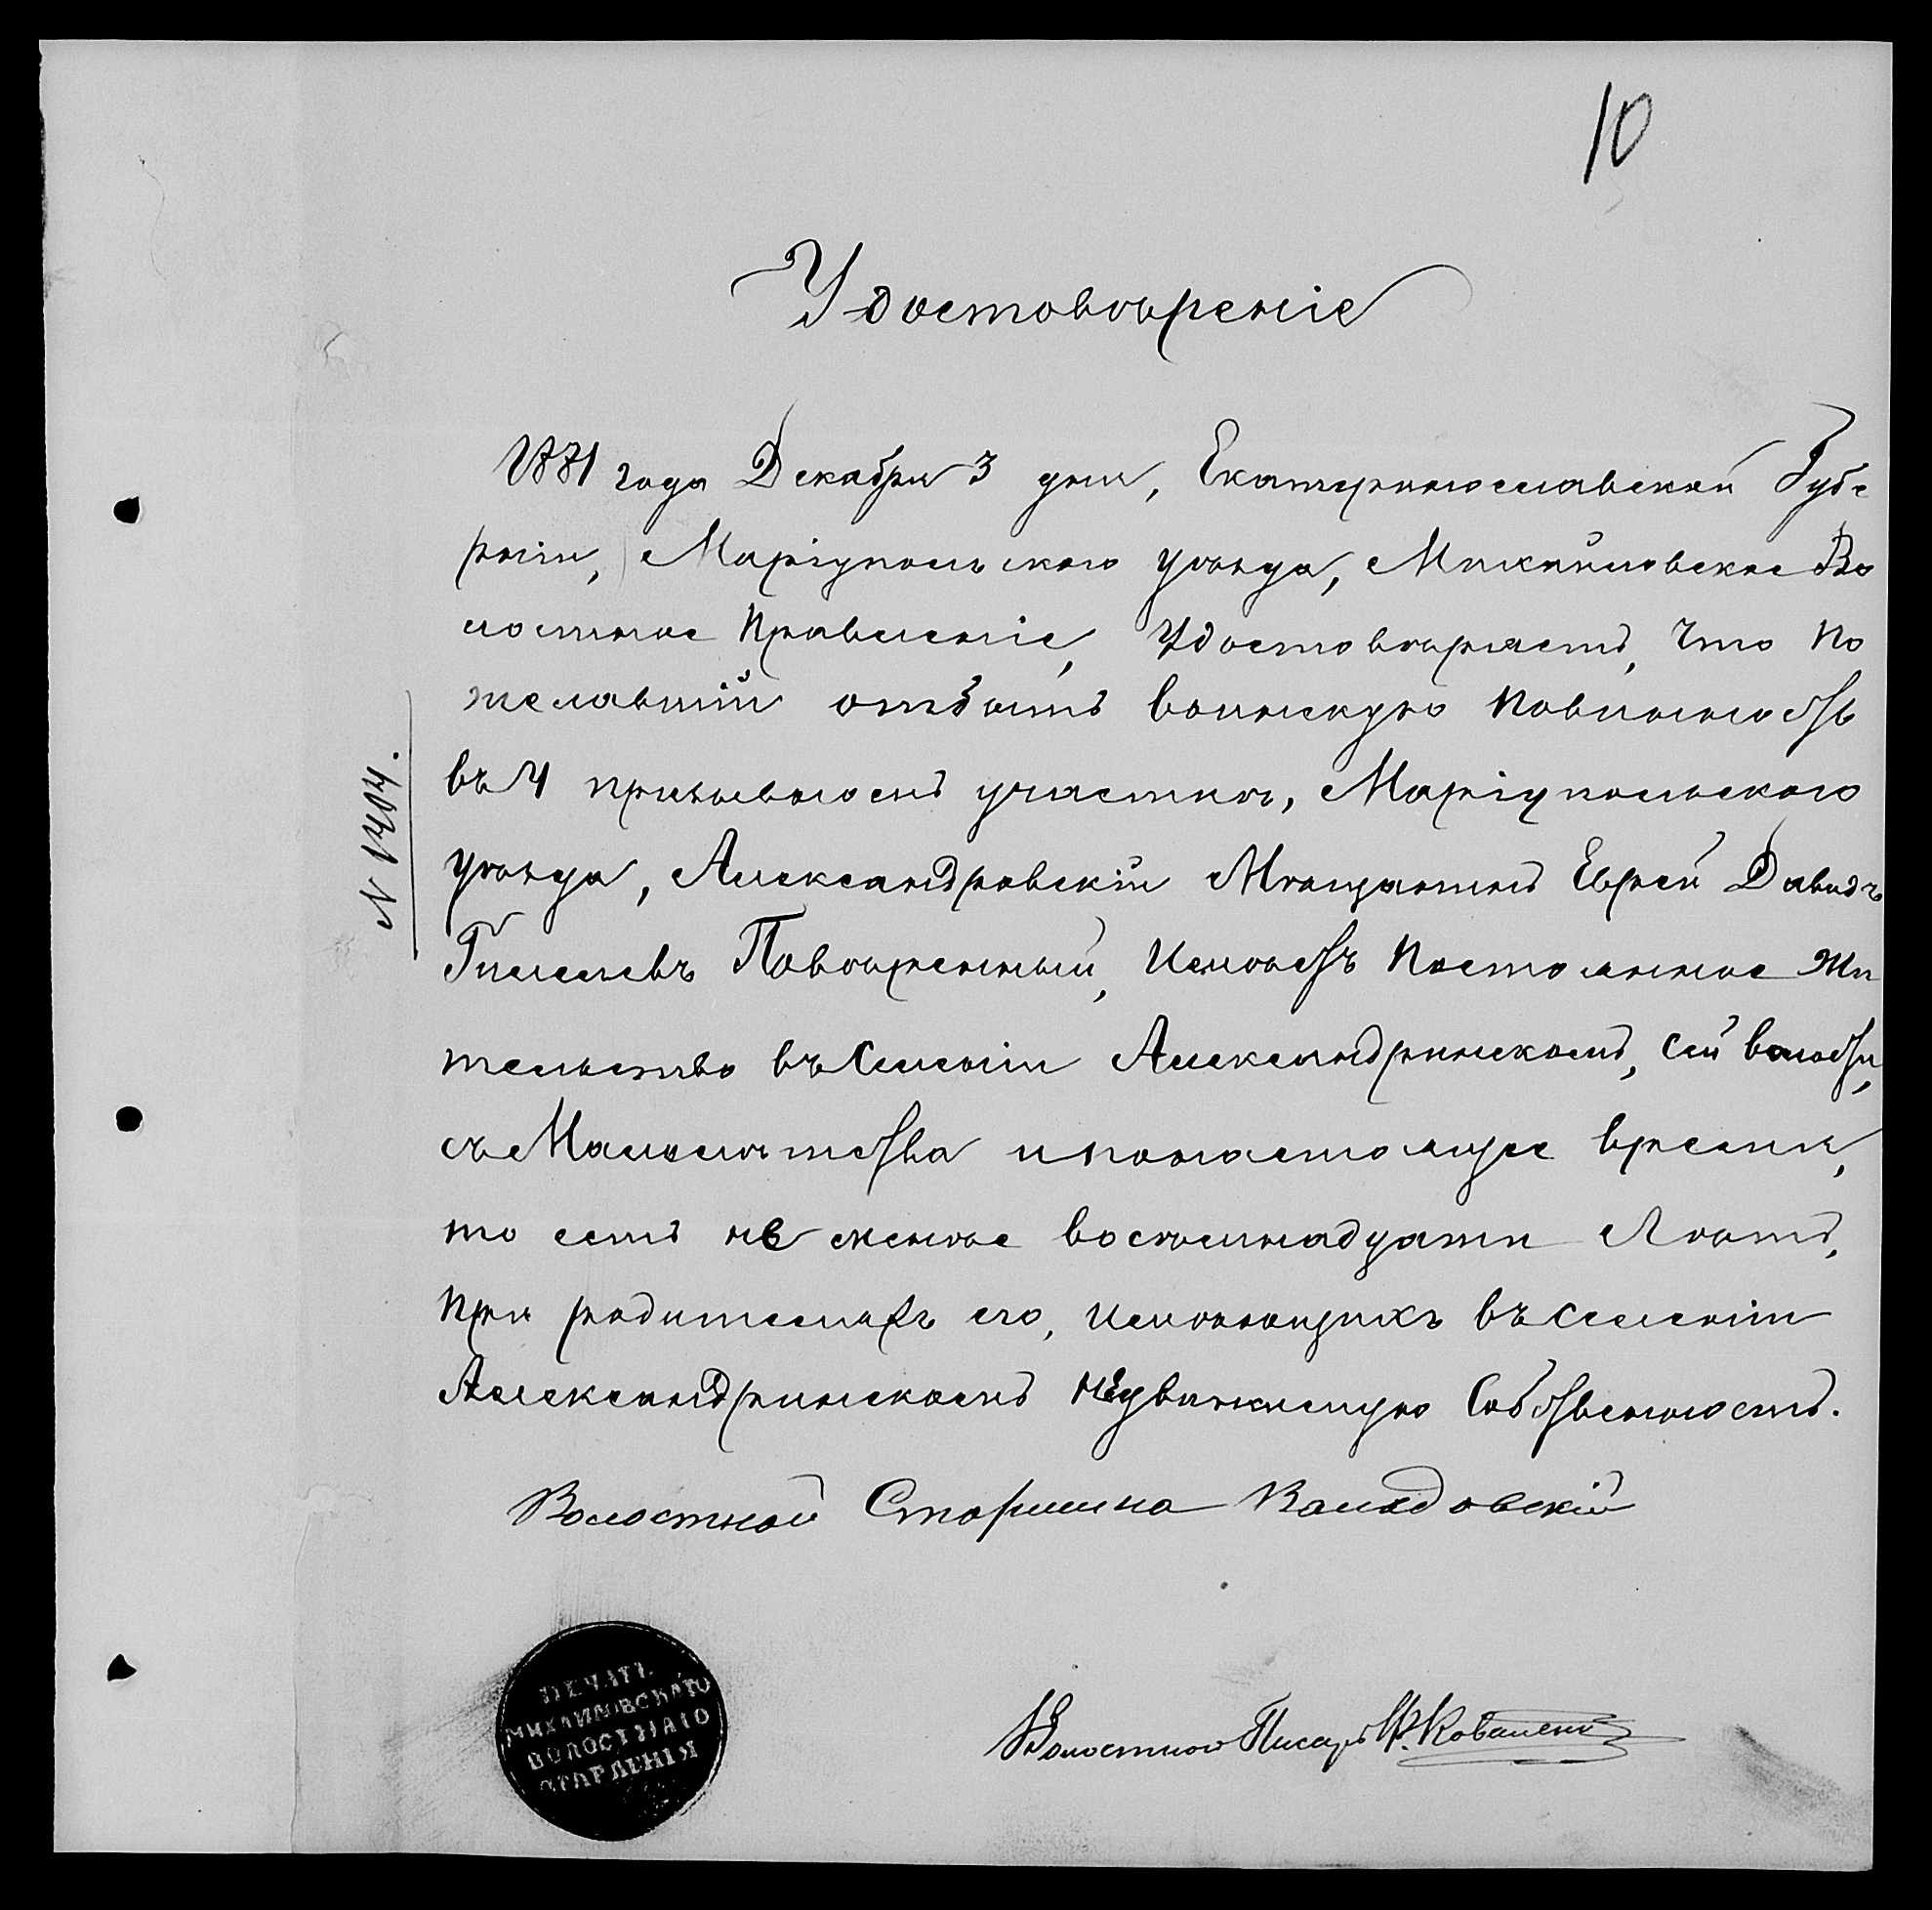 10
Удостовѣреніе
1881 года Декабря 3 дня, Екатеринославской Губе
рніи, Маріупольскаго уѣзда, Михайловское Во
лостное Правленіе, Удостовѣряетъ, что по
желавшій отбыть воинскую повинность
въ 4 призывномъ участкѣ, Маріупольскаго
уѣзда, Александровскій Мѣщанинъ Еврей Давидъ
Гилелевъ Повѣренный, Имѣетъ постоянное жи
тельство въ Селеніи Александринскомъ, сей волости,
съ Малолѣтства и по настоящее время,
то есть не менѣе восьмнадцати Лѣтъ,
при родителяхъ его, имѣющихъ въ селеніи
Александринскомъ недвижимую Собственность.
Волостной Старшина
Волостной Писарь Коваленко
N 1404.
ПЕЧАТЬ
МИХАЙЛОВСКАГО
ВОЛОСТНАГО
ПРАВЛЕНІЯ